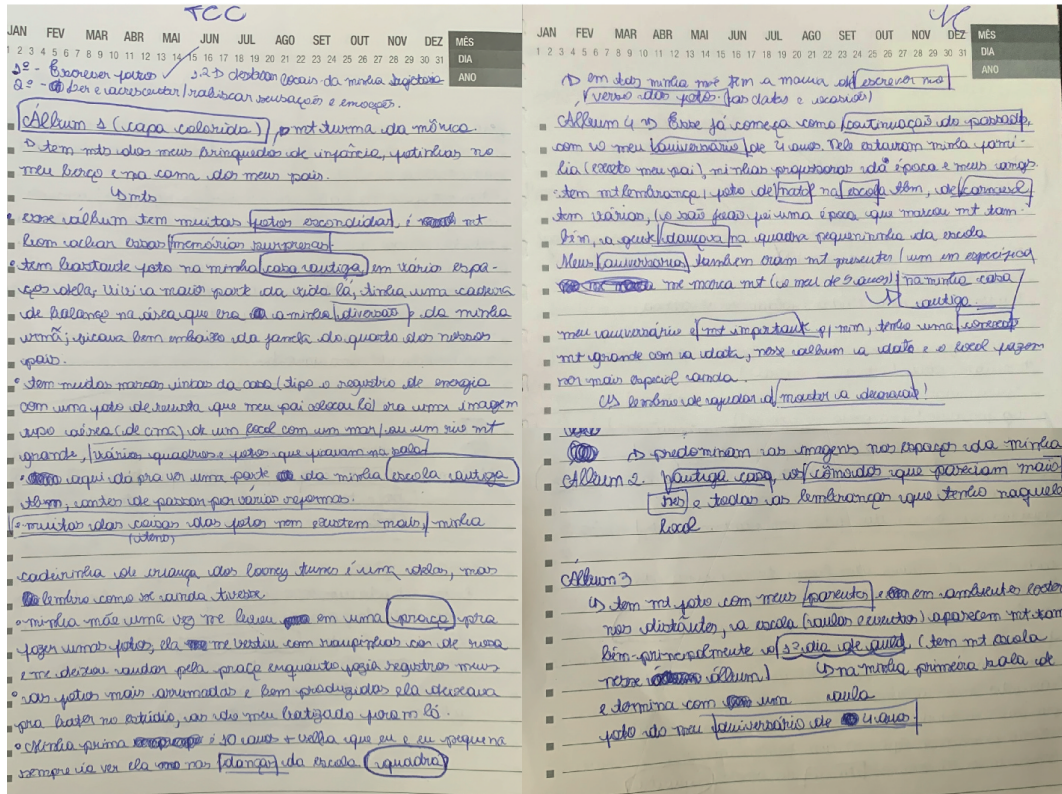 TCC
JAN FEV MAR ABR MAI JUN JUL AGO SET OUT NOV DEZ MÊS
1 2 3 4 5 6 7 8 9 10 11 12 13 14 15 16 17 18 19 20 21 22 23 24 25 26 27 28 29 30 31 DIA
ANO
1º - Escrever fotos
destacar locais da minha trajetória
2º - Ler e acrescentar/rabiscar sensações e emoções.
Álbum 1 (capa colorida) mt turma da mônica.
tem mts dos meus brinquedos de infância, fotinhas no
meu berço e na cama dos meus pais.
mts
esse álbum tem muitas fotos escondidas, é mt
bom achar essas memórias surpresas
tem bastante foto na minha casa antiga em vários espa-
ços dela, vivi a maior parte da vida lá, tinha uma cadeira
de balanço na área que era a minha diversão e da minha
irmã; ficava bem embaixo da janela do quarto dos nossos
pais.
tem muitas marcas da casa (tipo o registro de energia
com uma foto de revista que meu pai colocou lá) era uma imagem
tipo aérea (de cima) de um local com um mar/ou um rio mt
grande, vários quadros e fotos que ficavam na sala
aqui dá pra ver uma parte da minha escola antiga
tbm, antes de passar por várias reformas.
muitas das coisas das fotos nem existem mais, minha
(itens)
cadeirinha de criança dos looney tunes é uma delas, mas
lembro como se ainda tivesse
minha mãe uma vez me levou em uma praça pra
fazer umas fotos, ela me vestiu com roupinhas cor de rosa
e me deixou andar pela praça enquanto fazia registros meus
as fotos mais arrumadas e bem produzidas ela deixava
pra bater no estúdio, as do meu batizado foram lá.
Minha prima é 10 anos + velha que eu e eu pequena
sempre ia ver ela nas danças da escola (quadra)
JAN FEV MAR ABR MAI JUN JUL AGO SET OUT NOV DEZ MÊS
1 2 3 4 5 6 7 8 9 10 11 12 13 14 15 16 17 18 19 20 21 22 23 24 25 26 27 28 29 30 31 DIA
ANO
em todos minha mãe tem a mania de escrever no
verso das fotos. (as datas e ocasiões)
Álbum 4 Esse já começa como continuação do passado,
com o meu aniversário de 4 anos. Nele estavam minha famí-
lia (exceto meu pai), minhas professoras da época e meus amgs.
tem mt lembrança, foto de natal na escola tbm, de carnaval
tem vários, (o são joão foi uma época que marcou mt tam-
bém, a gente dançava na quadra pequenininha da escola
Meus aniversários também eram mt presentes (um em específico
me marca mt (o meu de 5 anos) na minha casa
antiga.
meu aniversário é mt important p/ mim, tenho uma conexão
mt grande com a data, nesse album a data e o local fazem
ser mais especial ainda.
lembro de ajudar a montar a decoração!
predominam as imagens nos espaços da minha
Álbum 2. antiga casa, os cômodos que pareciam mais
e todas as lembranças que tenho naquele
local
Álbum 3
tem mt foto com meus parentes em ambientes exter
nos distantes, a escola (aulas e eventos) aparecem mt tam
bém - principalmente o 1º dia de aula, (tem mt escola
nesse álbum) na minha primeira sala de
e termina com uma aula
foto do meu aniversário de 4 anos